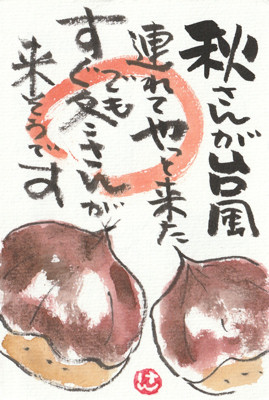 秋さんが台風
連れてやって来た
でも
すぐ冬さんが
来そうです
けん